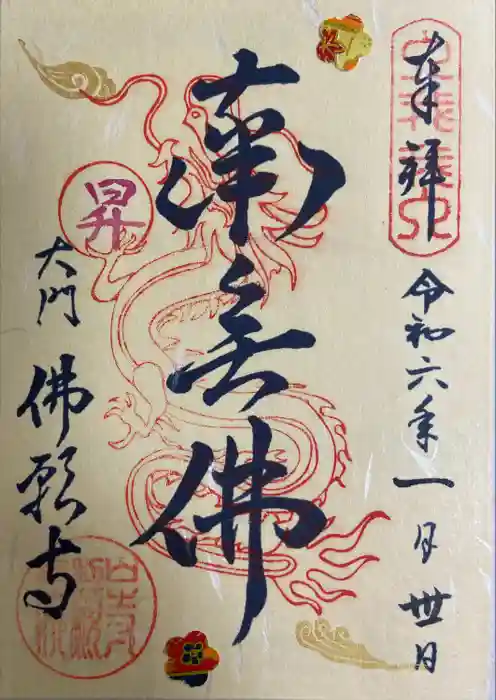 奉拝
令和六年一月丗日
南無佛
昇
大門
佛願寺